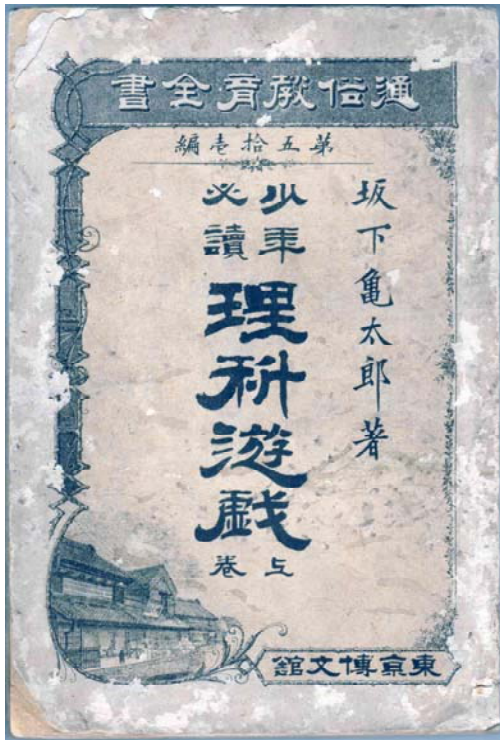 通俗教育全書
第五拾壱編
坂下亀太郎著
少年
必讀
理科游戯
上卷
東京博文館